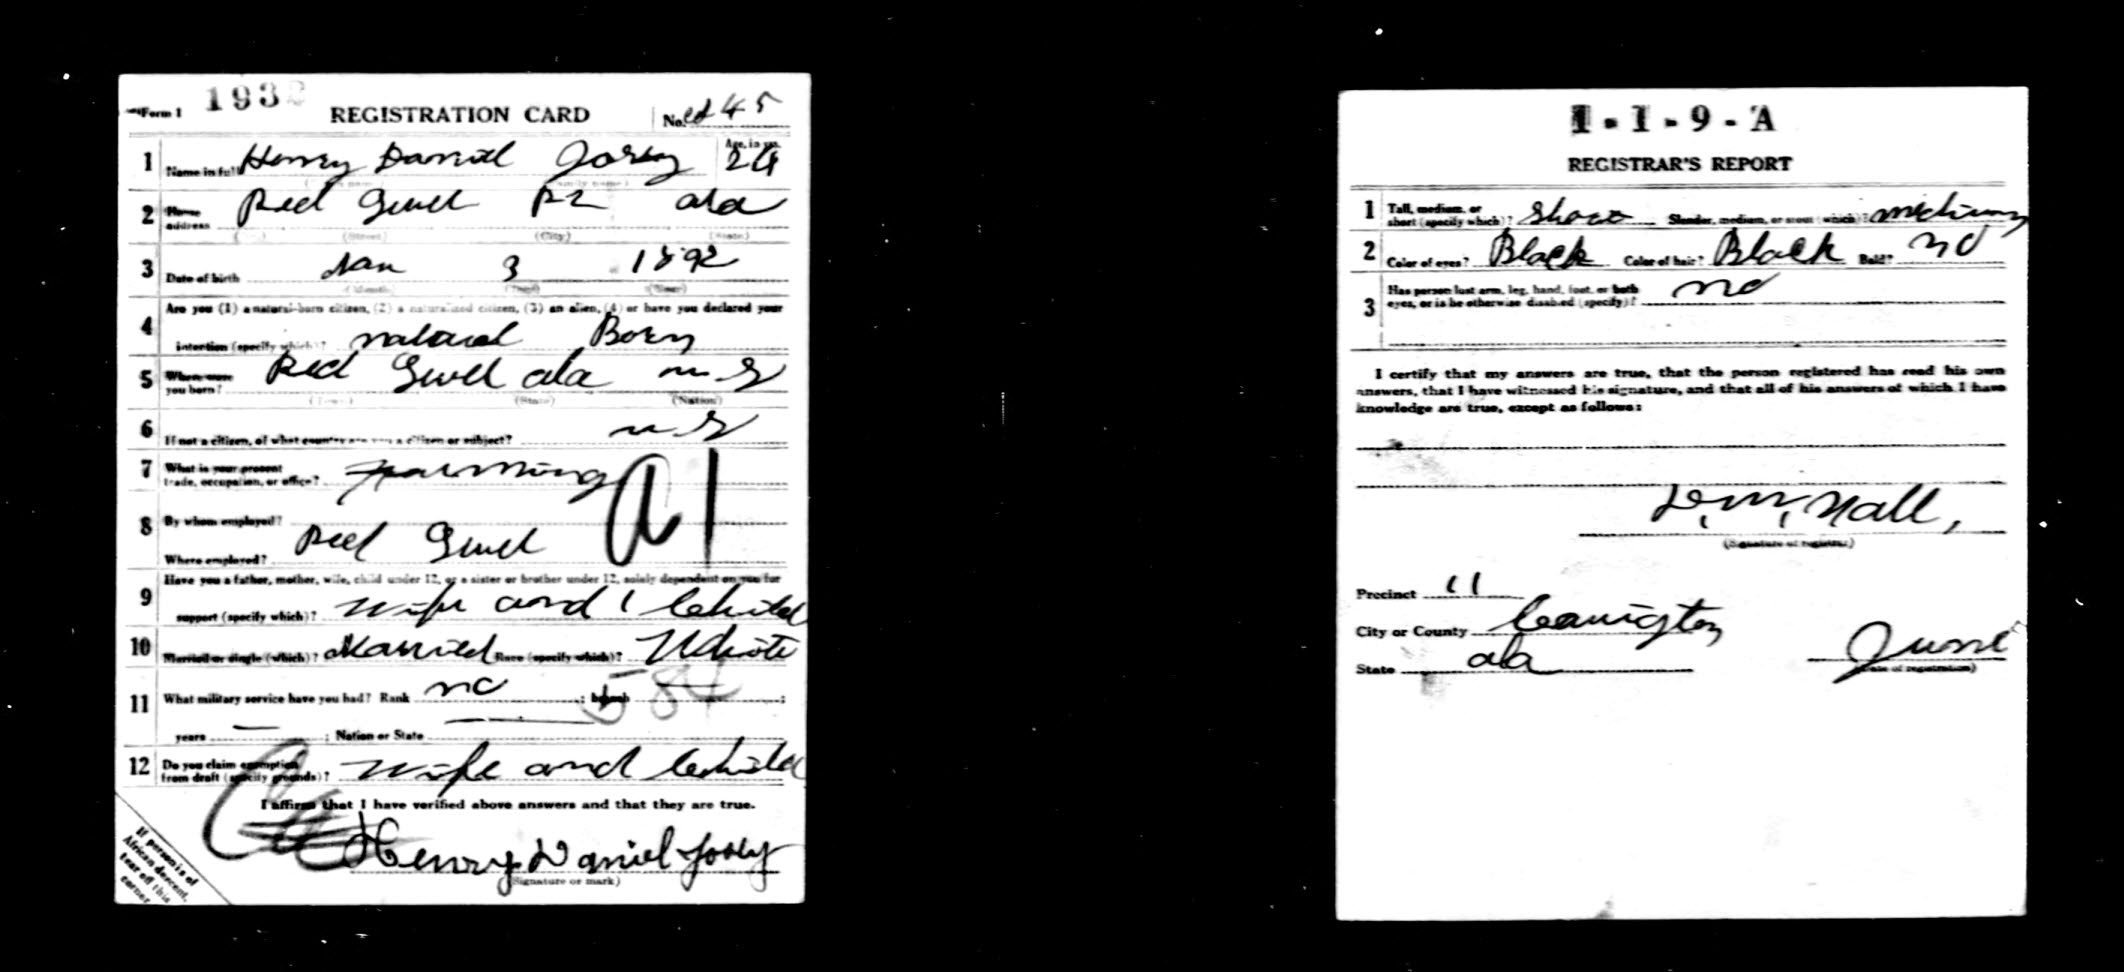 Form 1 193 REGISTRATION CARD No. 45
1 Name in full Henry Daniel Age, in yrs.
(Family name)
2 Home address Red R2 ala
(Street) (City) (State)
3 Date of birth Jan 3 1892
(Month) (Day) (Year)
4 Are you (1) a natural-born citizen, (2) a naturalized citizen, (3) an alien, (4) or have you declared your
intention (specify which)? natural Born
5 Where were you born? Red ala U S
(Town) (State) (Nation)
6 If not a citizen, of what country are you a citizen or subject? U S
7 What is your present
trade, occupation, or office? Farming
A1
8 By whom employed?
Where employed? Red
9 Have you a father, mother, wife, child under 12, or a sister or brother under 12, solely dependent on you for
support (specify which)? Wife and 1 Child
10 Married or single (which)? Married Race (specify which)? White
11 What military service have you had? Rank no ; branch ;
584
years ; Nation or State
12 Do you claim exemption
from draft (specify grounds)? Wife and Child
I affirm that I have verified above answers and that they are true.
Henry Daniel
(Signature or mark)
If person is of
African descent,
tear off this
corner
1-1-9-A
REGISTRAR'S REPORT
1 Tall, medium, or
short (specify which)? Short Slender, medium, or stout (which)? medium
2 Color of eyes? Black Color of hair? Black Bald? no
3 Has person lost arm, leg, hand, foot, or both
eyes, or is he otherwise disabled (specify)? no
I certify that my answers are true, that the person registered has read his own
answers, that I have witnessed his signature, and that all of his answers of which I have
knowledge are true, except as follows:
D. M. Nall,
(Signature of registrar)
Precinct 11
City or County Covington
State ala June
(Date of registration)